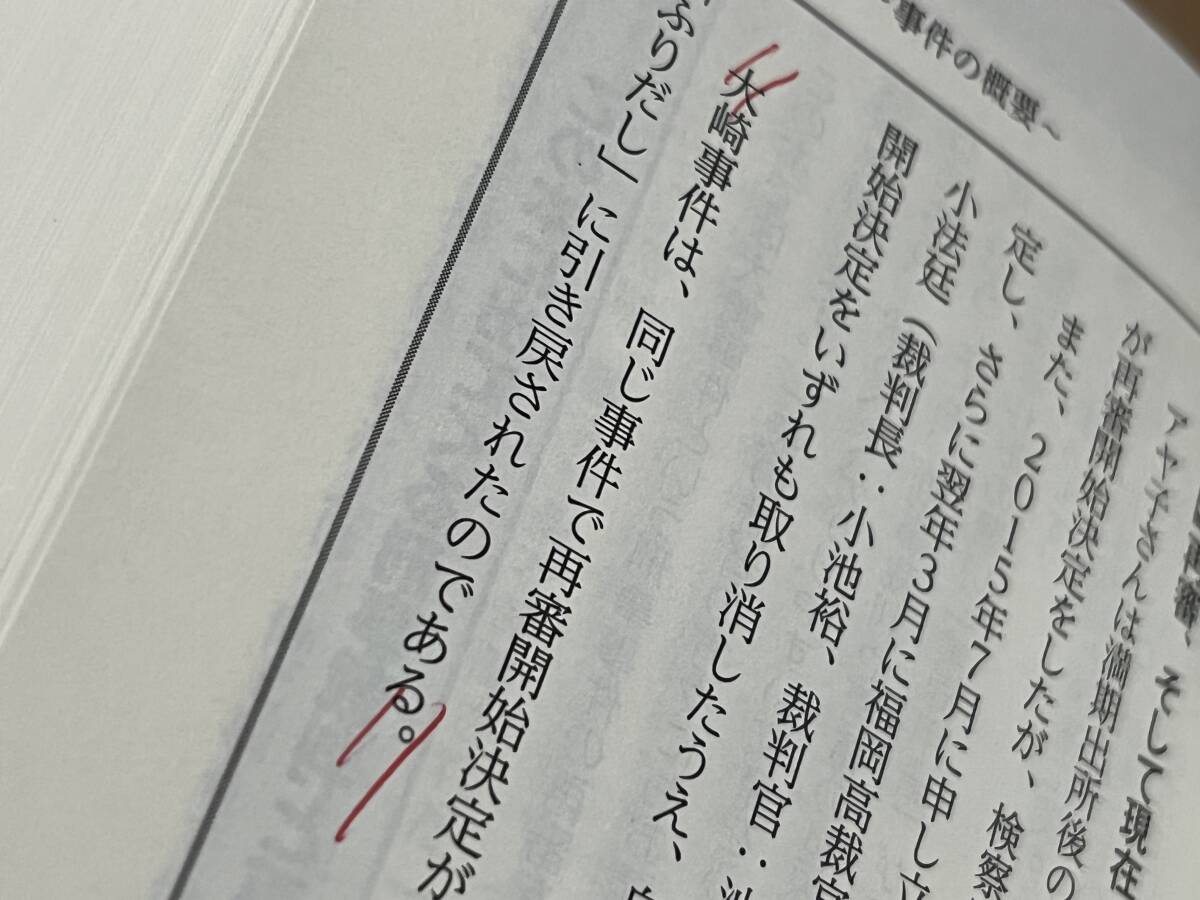 事件の概要～
再審、そして現在
アヤ子さんは満期出所後の
が再審開始決定をしたが、検察
また、2015年7月に申し立
定し、さらに翌年3月に福岡高裁宮
小法廷（裁判長：小池裕、裁判官：池
開始決定をいずれも取り消したうえ、自
大崎事件は、同じ事件で再審開始決定が
ふりだし」に引き戻されたのである。